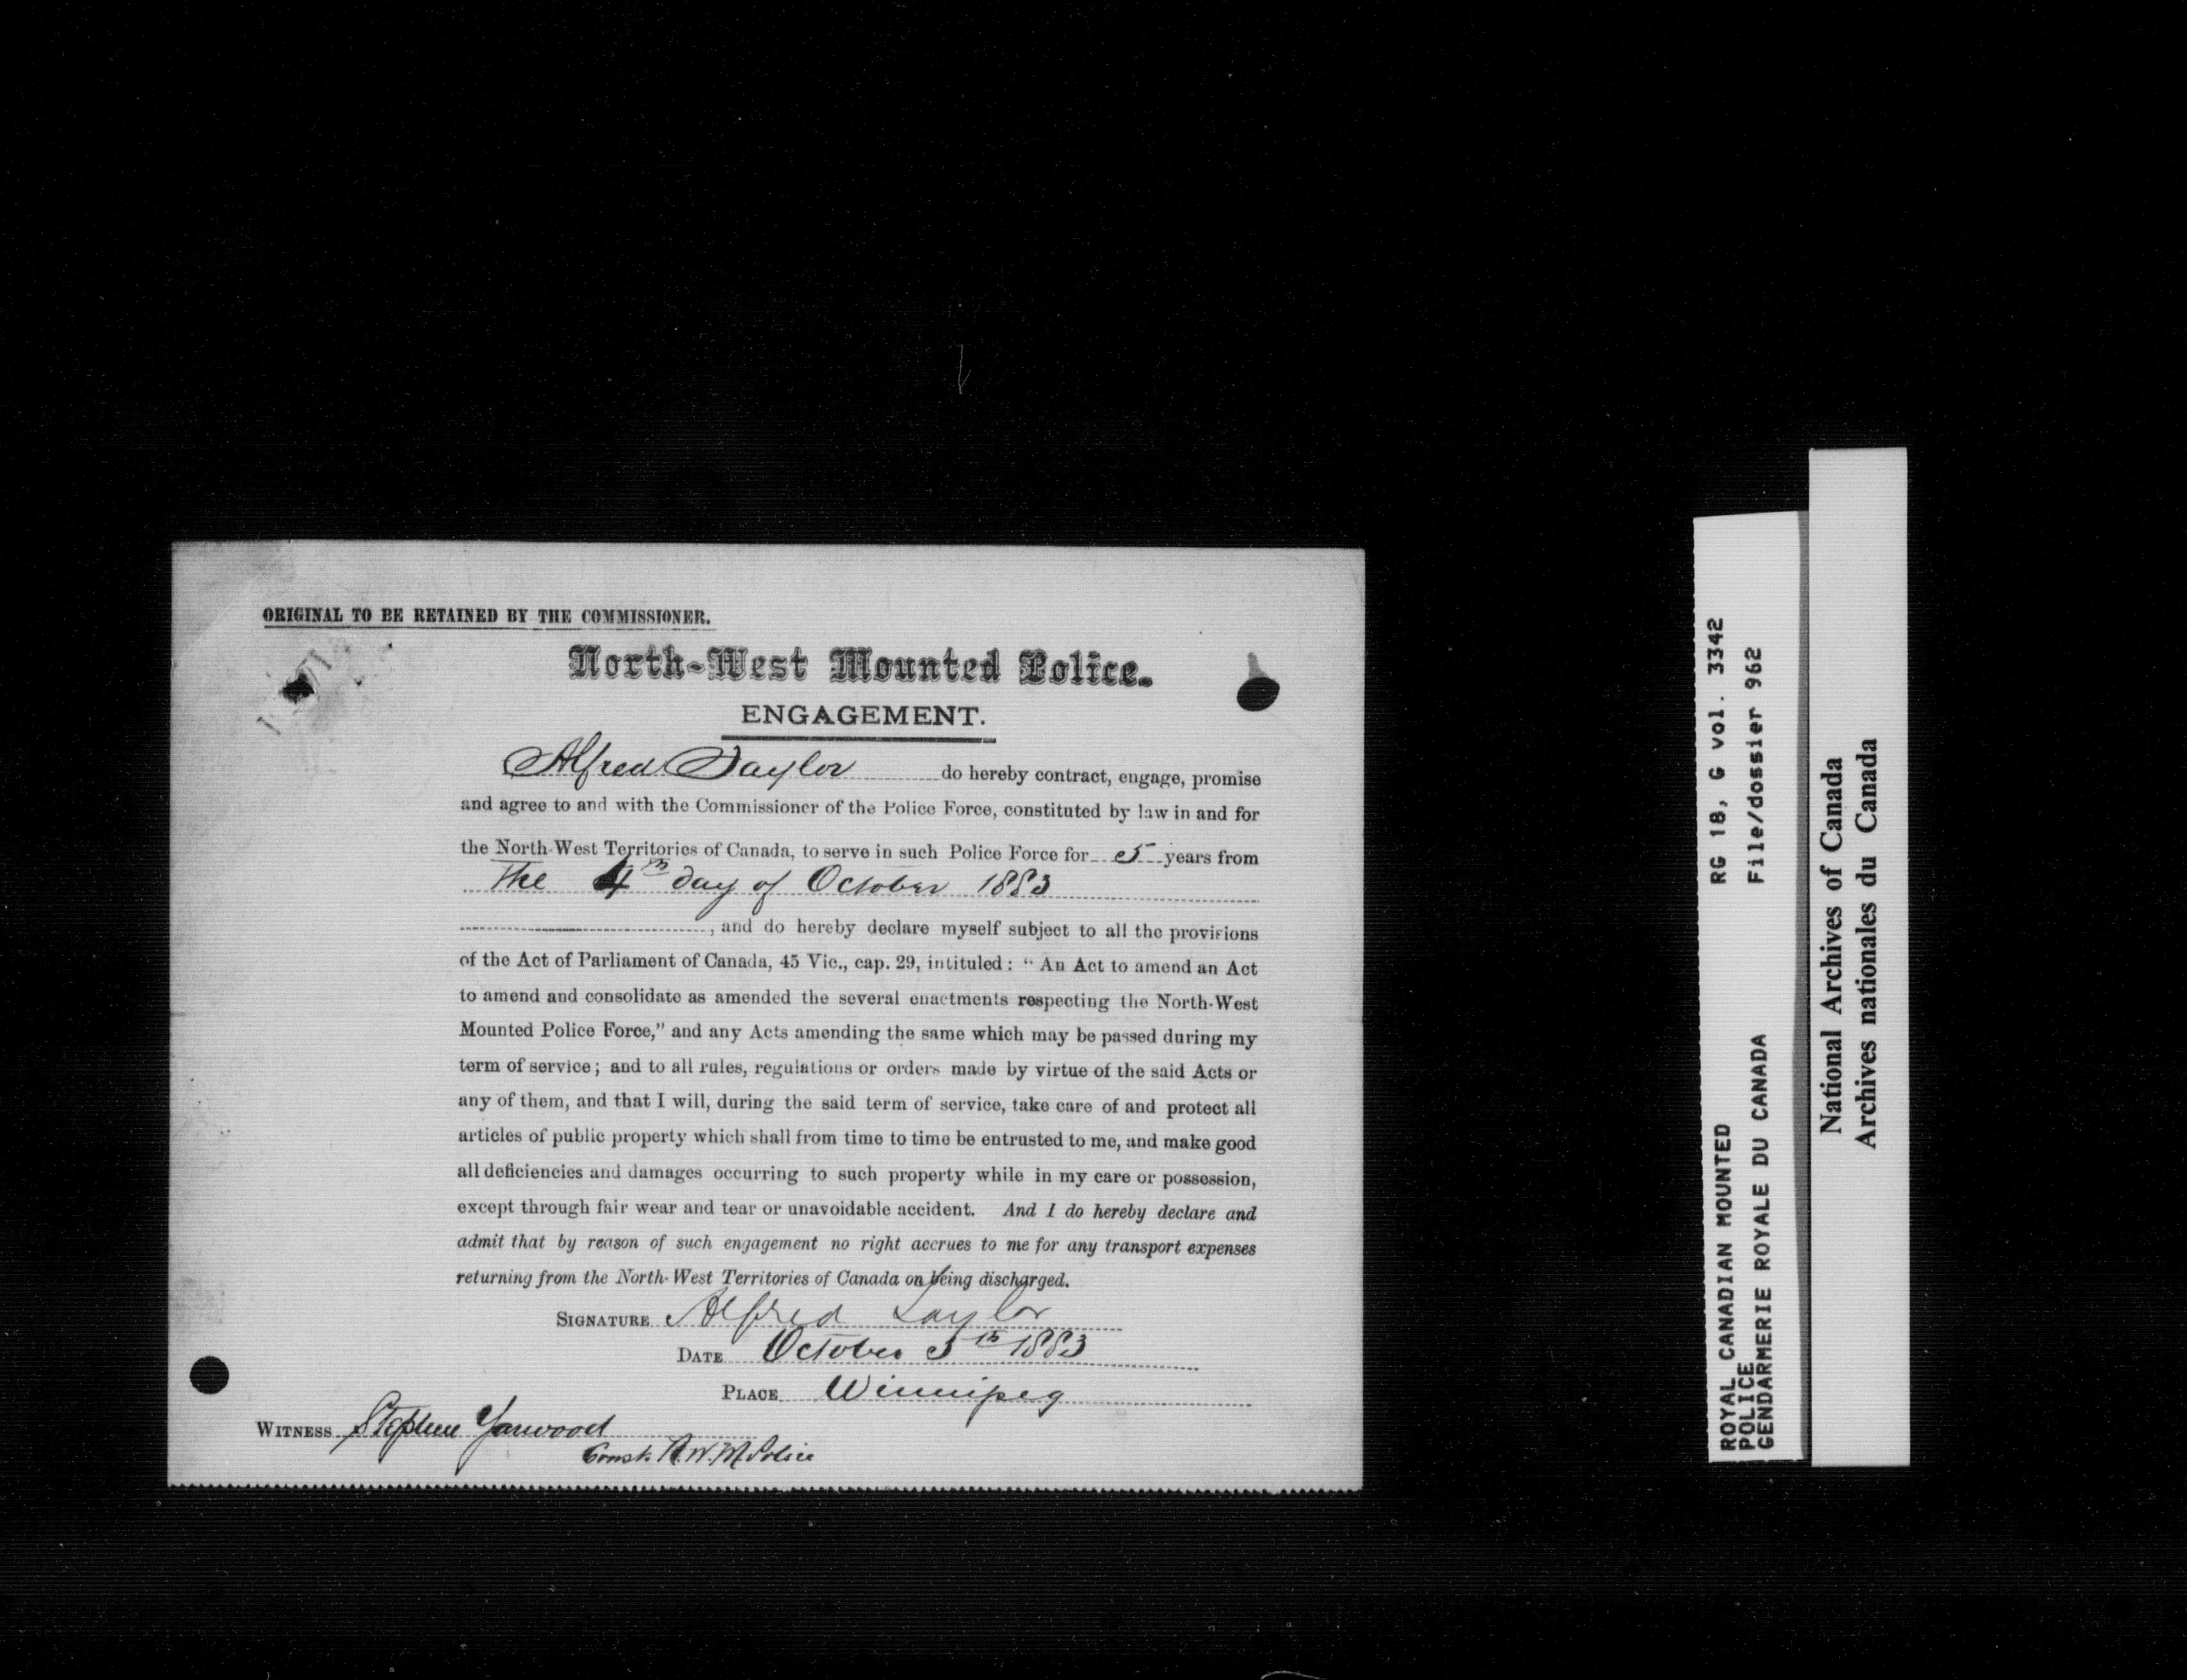 ORIGINAL TO BE RETAINED BY THE COMMISSIONER.
North-West Mounted Police.
ENGAGEMENT.
Alfred Taylor do hereby contract, engage, promise
and agree to and with the Commissioner of the Police Force, constituted by law in and for
the North-West Territories of Canada, to serve in such Police Force for 5 years from
The 4th day of October 1883
, and do hereby declare myself subject to all the provisions
of the Act of Parliament of Canada, 45 Vic., cap. 29, intituled: “An Act to amend an Act
to amend and consolidate as amended the several enactments respecting the North-West
Mounted Police Force,” and any Acts amending the same which may be passed during my
term of service; and to all rules, regulations or orders made by virtue of the said Acts or
any of them, and that I will, during the said term of service, take care of and protect all
articles of public property which shall from time to time be entrusted to me, and make good
all deficiencies and damages occurring to such property while in my care or possession,
except through fair wear and tear or unavoidable accident. And I do hereby declare and
admit that by reason of such engagement no right accrues to me for any transport expenses
returning from the North-West Territories of Canada on being discharged.
SIGNATURE Alfred Taylor
DATE October 5th 1883
PLACE Winnipeg
WITNESS Stephen Yarwood
Const. N.W.M.Police
ROYAL CANADIAN MOUNTED RG 18, G vol. 3342
POLICE
GENDARMERIE ROYALE DU CANADA File/dossier 962
National Archives of Canada
Archives nationales du Canada